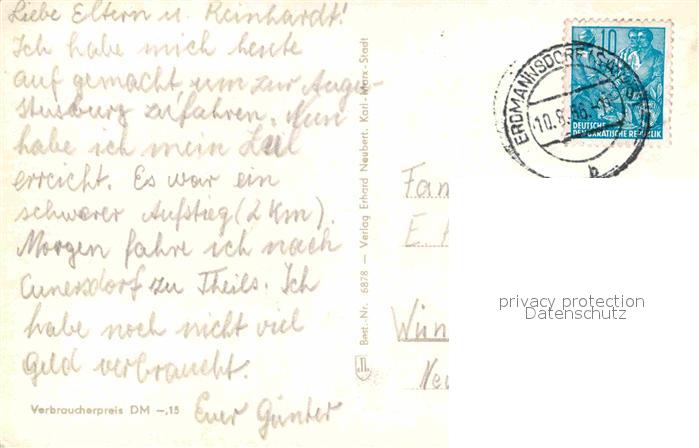 Liebe Eltern u. Reinhardt!
Ich habe mich heute
auf gemacht um zur Augu-
stusburg zufahren. Nun
habe ich mein Ziel
erreicht. Es war ein
schwerer Aufstieg (2 km).
Morgen fahre ich nach
Cunersdorf zu Theils. Ich
habe noch nicht viel
Geld verbraucht.
Euer Günter
Verbraucherpreis DM -,15
Best.-Nr. 6878 — Verlag Erhard Neubert, Karl-Marx-Stadt
ERDMANNSDORF
10.8.56
10
DEUTSCHE
DEMOKRATISCHE REPUBLIK
b
Fam
E
Wün
Neu
privacy protection
Datenschutz